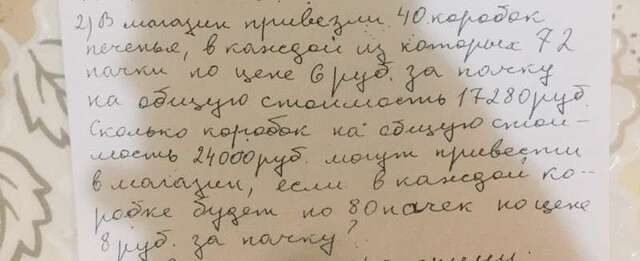 2) В магазин привезли 40 коробок
печенья, в каждой из которых 72
пачки по цене 6 руб. за пачку
на общую стоимость 17280 руб.
Сколько коробок на общую стои-
мость 24000 руб. могут привезти
в магазин, если в каждой ко-
робке будет по 80 пачек по цене
8 руб. за пачку?